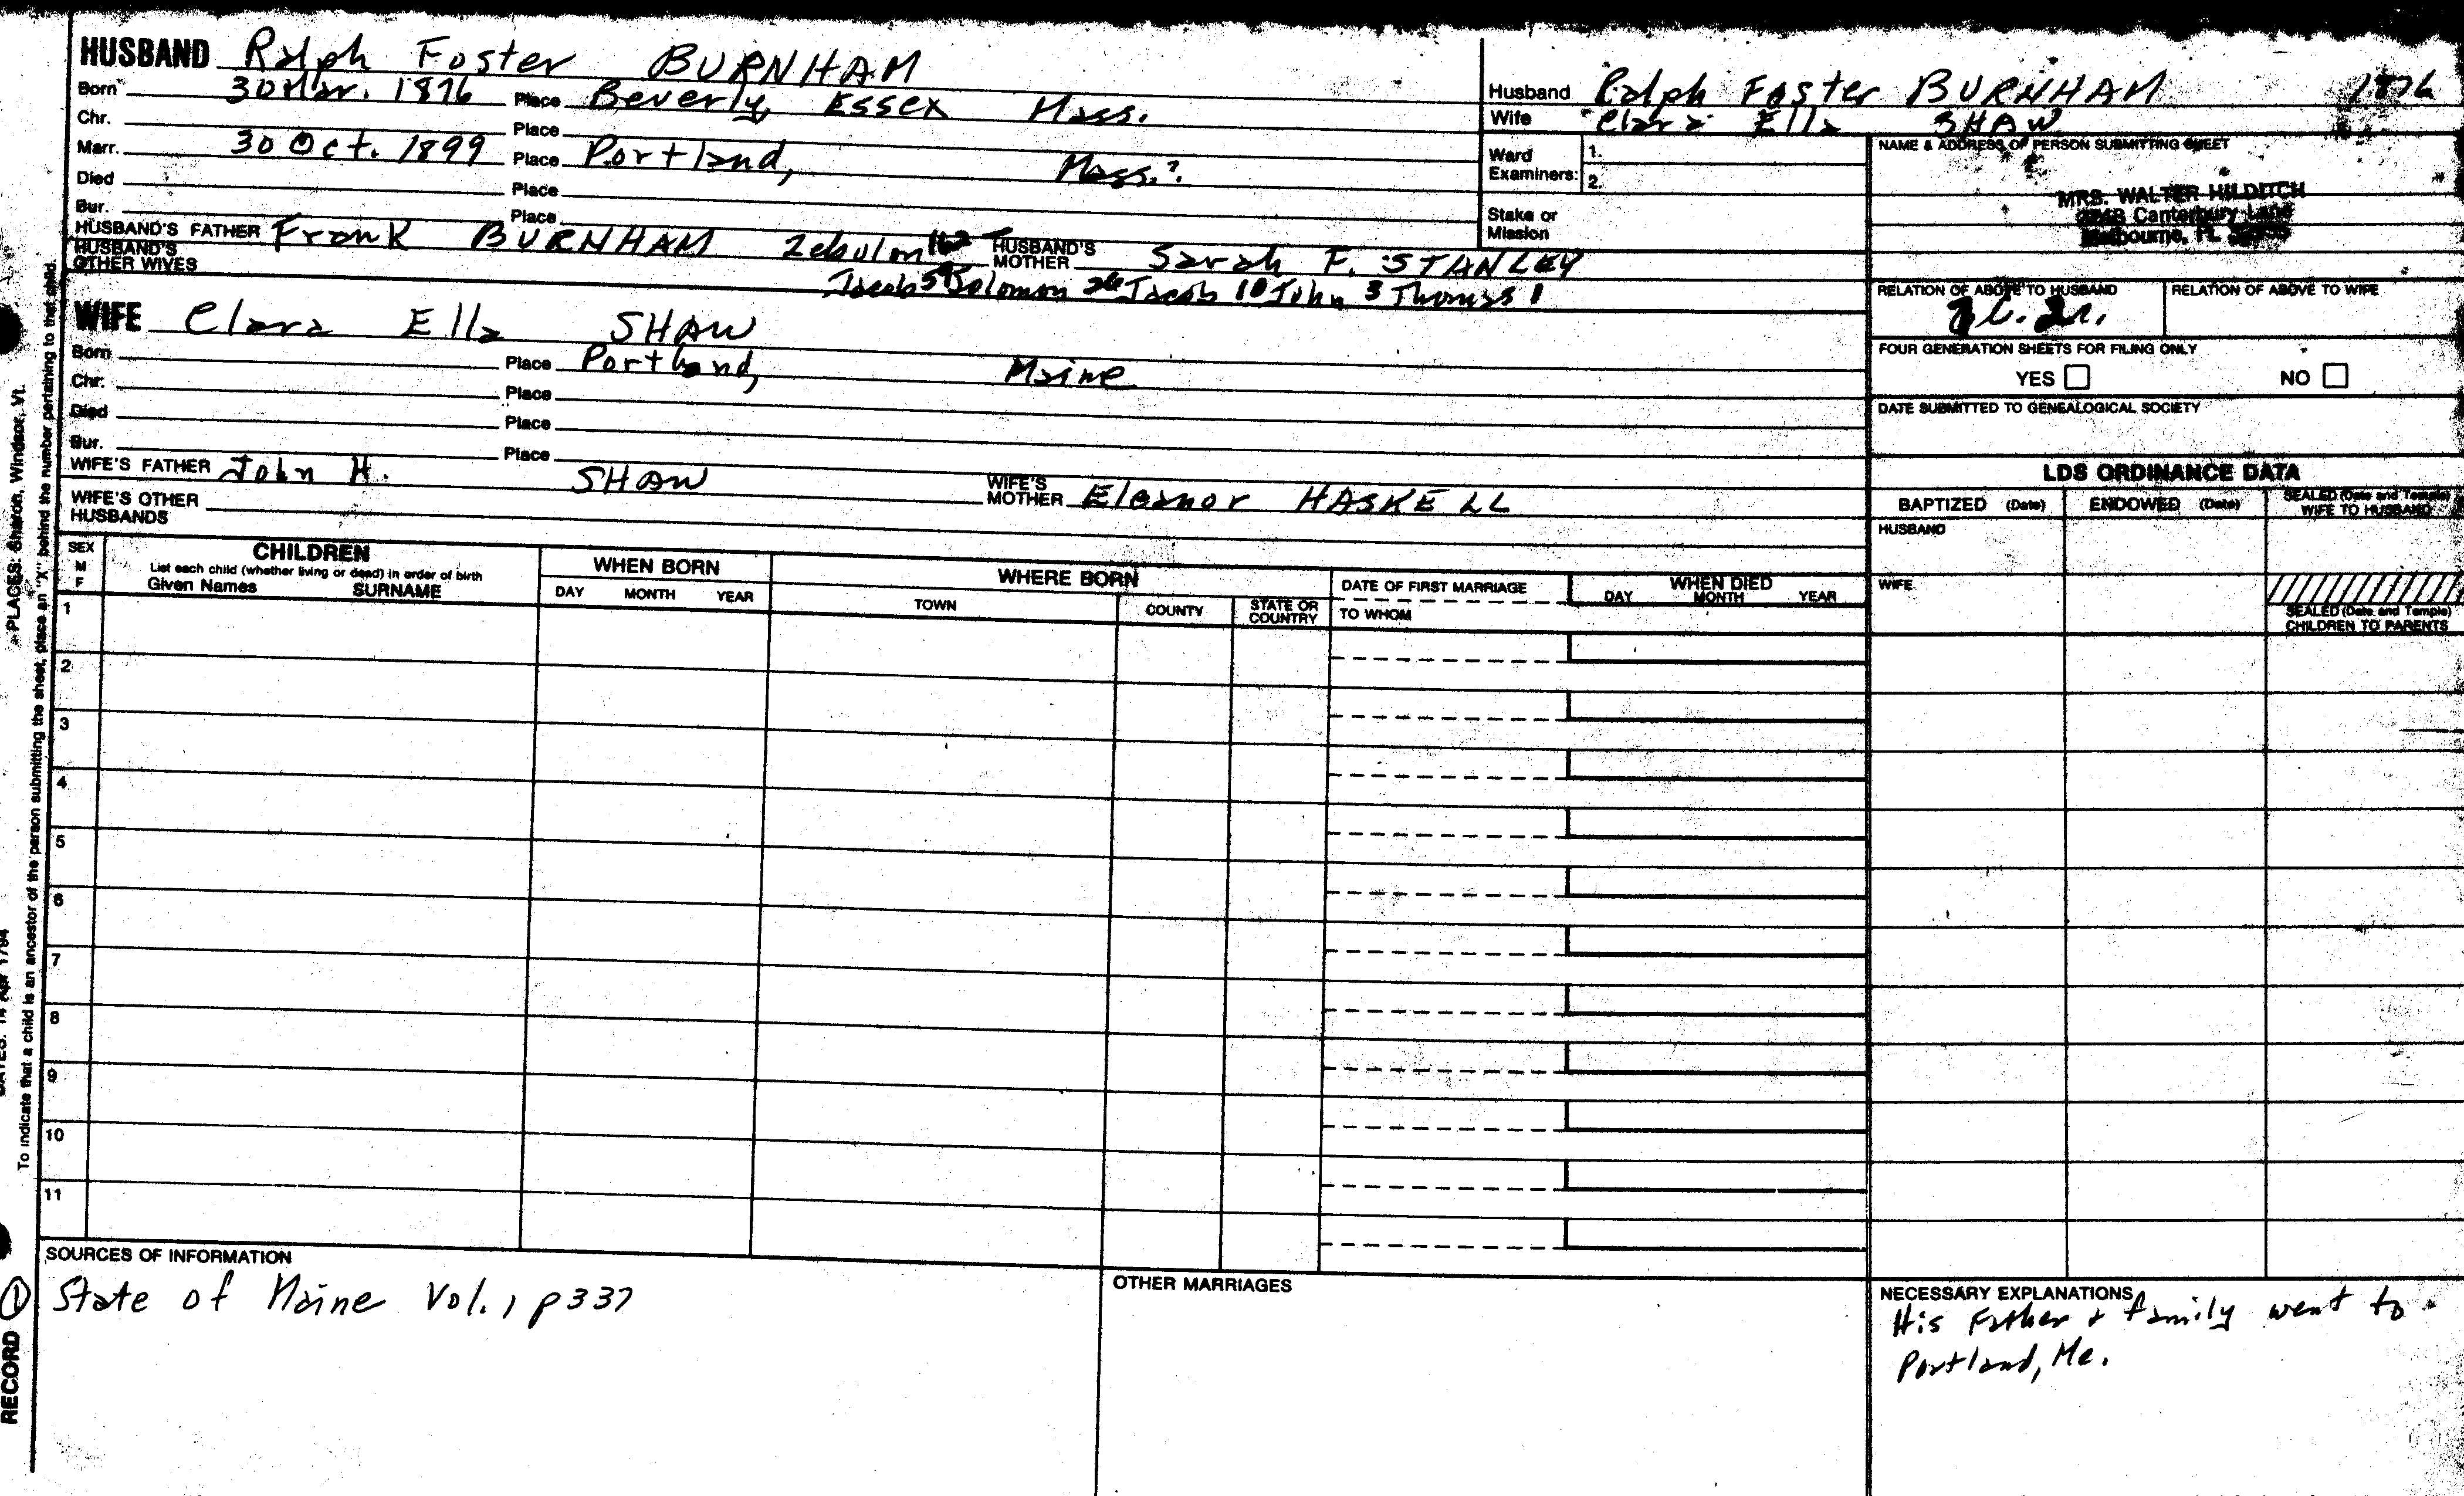 HUSBAND Ralph Foster BURNHAM
Born 30 Mar. 1876 Place Beverly, Essex Mass.
Chr. Place
Marr. 30 Oct. 1899 Place Portland, Mass.?
Died Place
Bur. Place
HUSBAND'S FATHER Frank BURNHAM Zebulon 162 HUSBAND'S MOTHER Sarah F. STANLEY
HUSBAND'S OTHER WIVES Jacob 59 Solomon 26 Jacob 10 John 3 Thomas 1
WIFE Clara Ella SHAW
Born Place Portland, Maine
Chr. Place
Died Place
Bur. Place
WIFE'S FATHER John H. SHAW WIFE'S MOTHER Eleanor HASKELL
WIFE'S OTHER HUSBANDS
Husband Ralph Foster BURNHAM 1876
Wife Clara Ella SHAW
Ward Examiners: 1.
2.
Stake or Mission
NAME & ADDRESS OF PERSON SUBMITTING SHEET
MRS. WALTER HILDITCH
Canterbury Lane
Melbourne, FL
RELATION OF ABOVE TO HUSBAND RELATION OF ABOVE TO WIFE
FOUR GENERATION SHEETS FOR FILING ONLY
YES NO
DATE SUBMITTED TO GENEALOGICAL SOCIETY
LDS ORDINANCE DATA
BAPTIZED (Date) ENDOWED (Date) SEALED (Date and Temple) WIFE TO HUSBAND
HUSBAND
WIFE
SEALED (Date and Temple) CHILDREN TO PARENTS
SEX M F
CHILDREN
List each child (whether living or dead) in order of birth
Given Names SURNAME
WHEN BORN
DAY MONTH YEAR
WHERE BORN
TOWN COUNTY STATE OR COUNTRY
DATE OF FIRST MARRIAGE
TO WHOM
WHEN DIED
DAY MONTH YEAR
1
2
3
4
5
6
7
8
9
10
11
SOURCES OF INFORMATION
State of Maine Vol. 1 p 337
OTHER MARRIAGES
NECESSARY EXPLANATIONS
His Father & family went to
Portland, Me.
PLACES: Sharon, Windsor, Vt.
To indicate that a child is an ancestor of the person submitting the sheet, place an "X" behind the number pertaining to that child.
DATES: 14 Apr 1794
RECORD